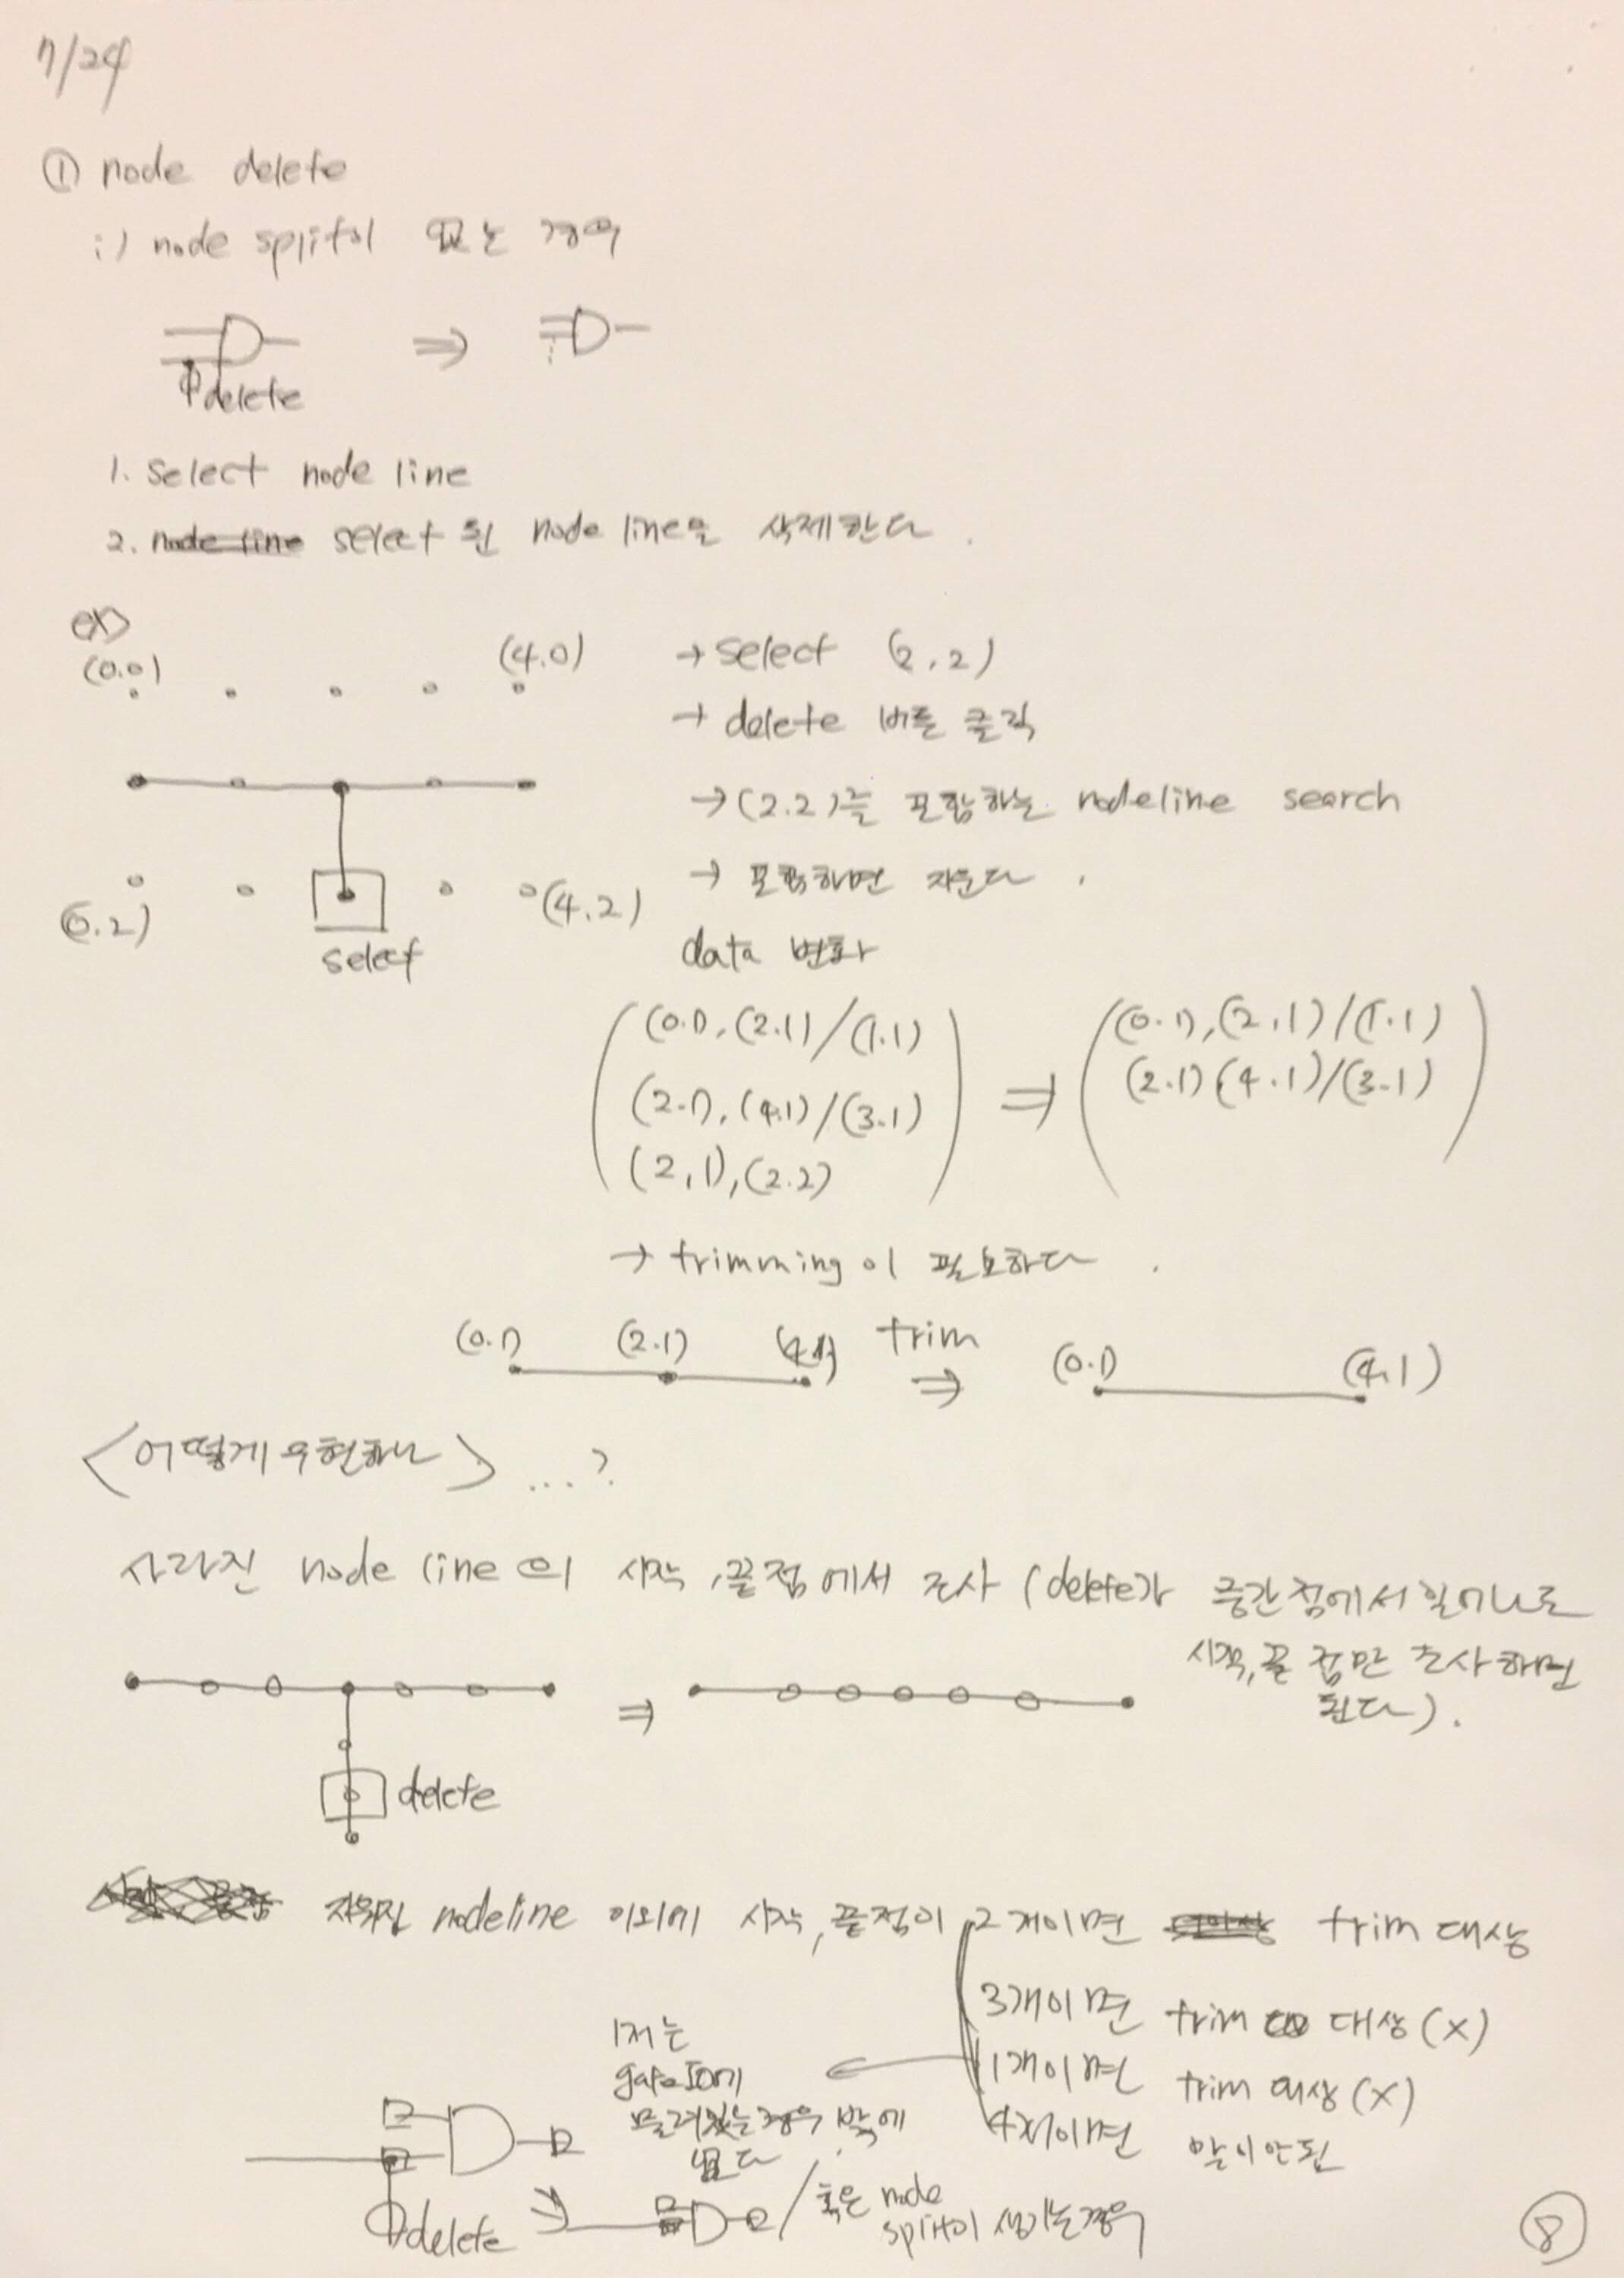 7/24
① node delete
i) node split이 없는 경우
delete
1. select node line
2. node line select 된 node line을 삭제한다.
ex>
(0.0)
(4.0)
→ select (2,2)
→ delete 버튼 클릭
→ (2.2)를 포함하는 nodeline search
→ 포함하면 지운다.
(0.2)
(4.2)
select
data 변화
(0.1), (2.1)/(1.1)
(2.1), (4.1)/(3.1)
(2,1),(2.2)
⇒
(0.1),(2,1)/(1.1)
(2.1)(4.1)/(3.1)
→ trimming이 필요하다.
(0.1) (2.1) (4.1) trim ⇒ (0.1) (4.1)
<어떻게 구현하나> ...?
사라진 node line의 시작, 끝점에서 조사 (delete가 중간점에서 일어나도
시작, 끝 점만 조사하면
된다).
⇒
delete
지워진 nodeline 이외에 시작, 끝점이 2개이면 trim 대상
3개이면 trim 대상(X)
1개이면 trim 대상(X)
4개이면 말이안됨
1개는
gate IO에
물려있는 경우 밖에
없다
/ 혹은 node
split이 생기는 경우
delete
⑧